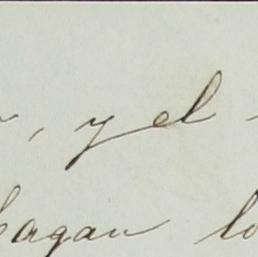 , y el
hagan lo